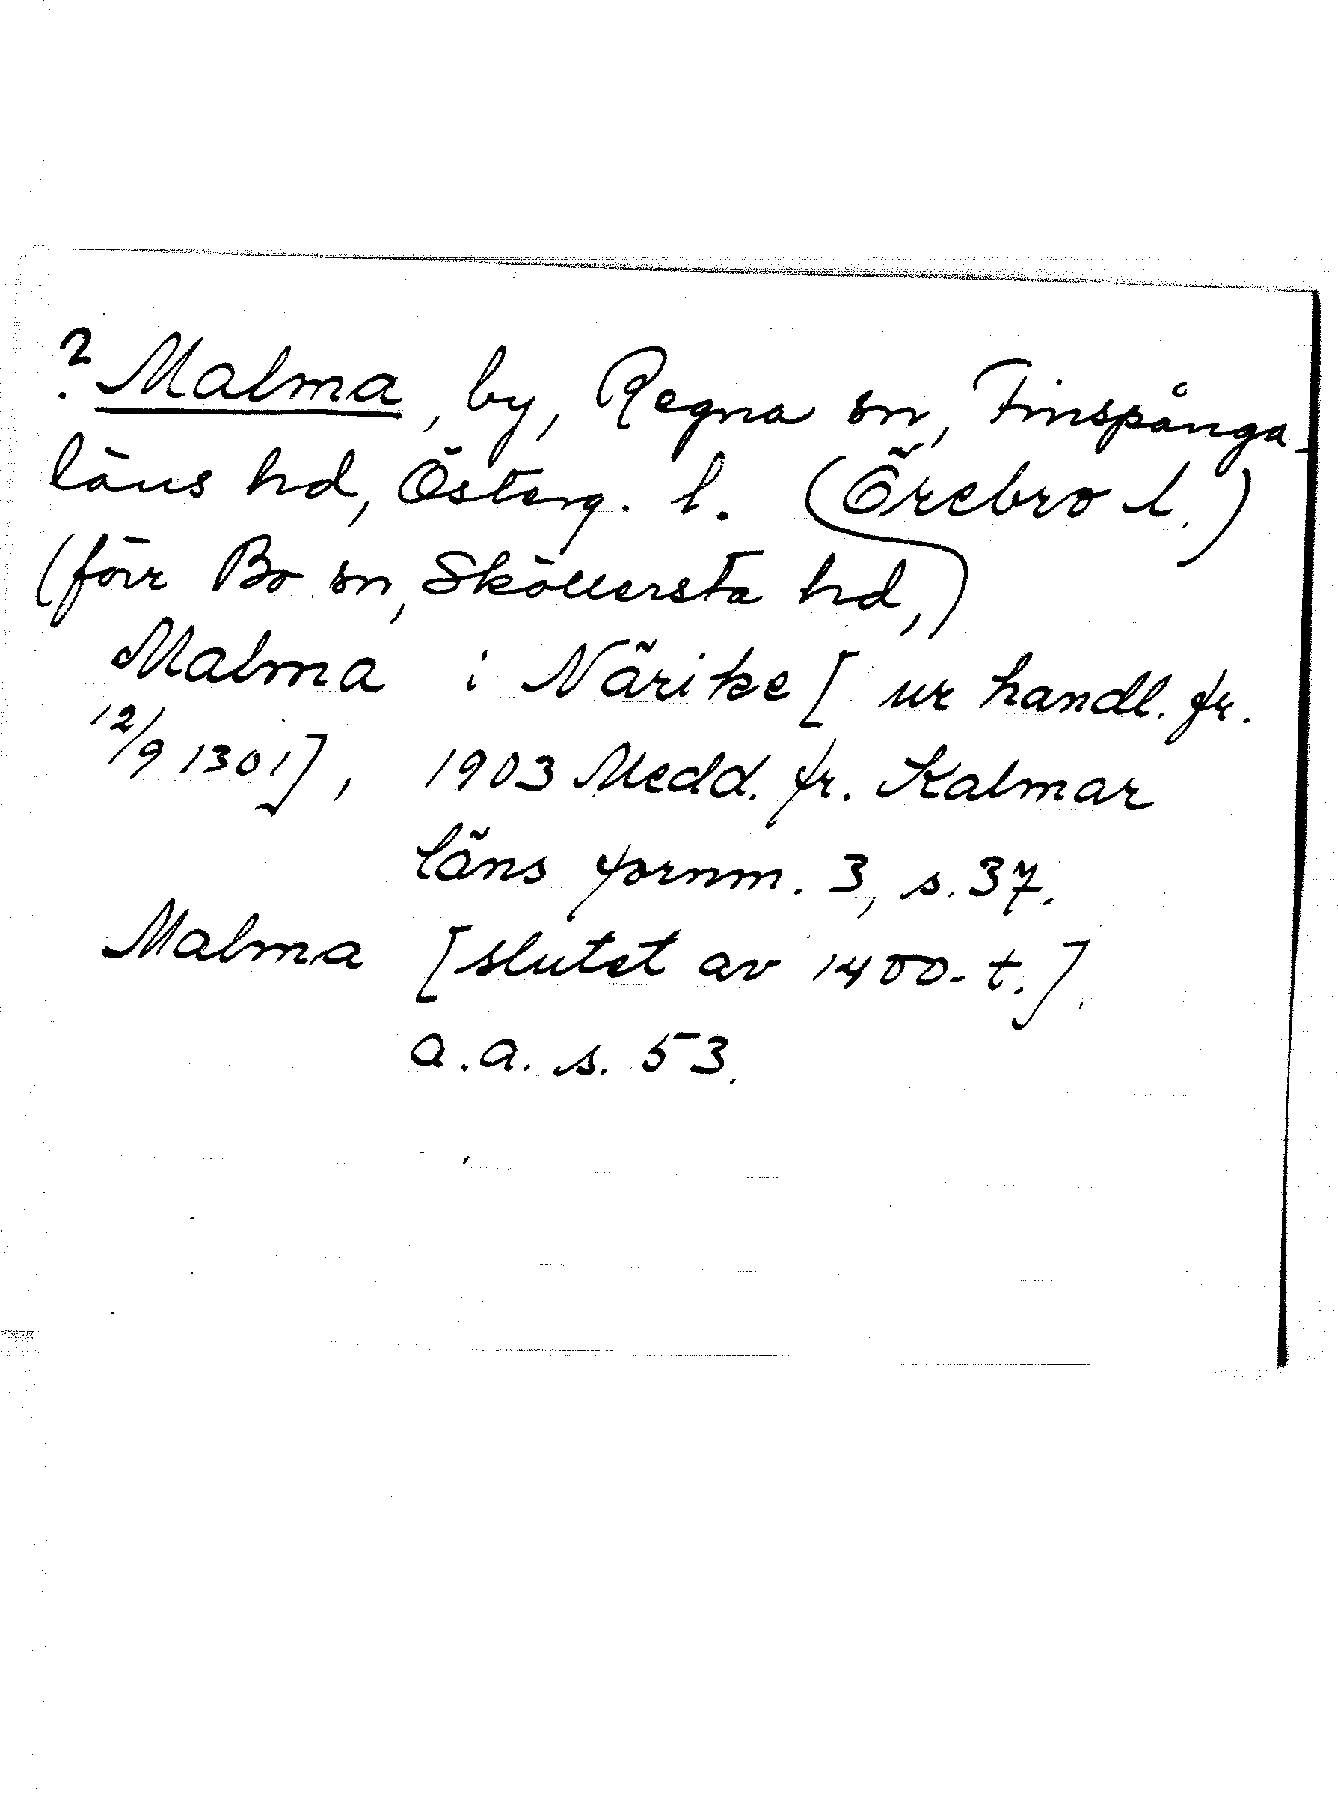 ? Malma, by, Regna sn, Finspånga-
läns hd, Österg. l. (Örebro l.)
(förr Bo sn, Sköllersta hd,)
Malma i Närike [ur handl. fr.
12/9 1301], 1903 Medd. fr. Kalmar
läns fornm. 3, s. 37.
Malma [slutet av 1400-t.]
a.a. s. 53.